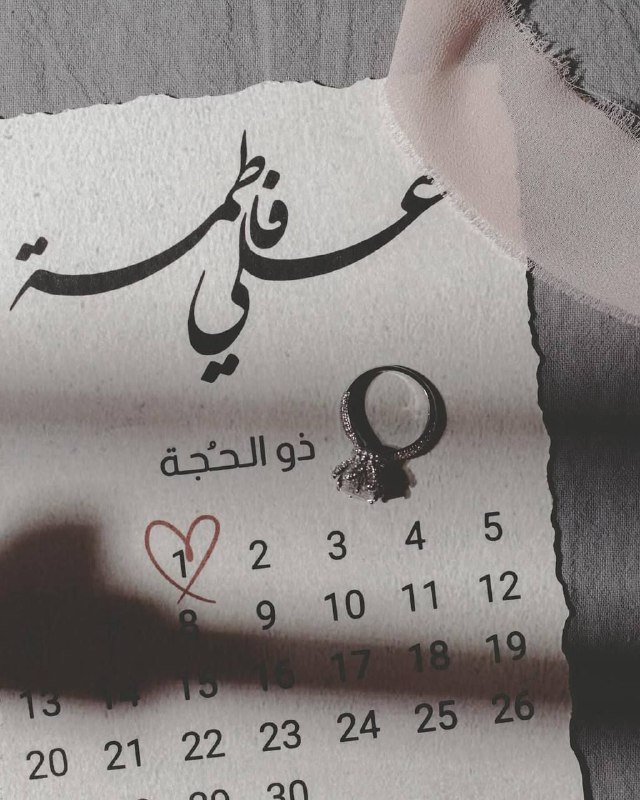 علي فاطمة
ذو الحُجة
1 2 3 4 5
8 9 10 11 12
13 14 15 16 17 18 19
20 21 22 23 24 25 26
29 30